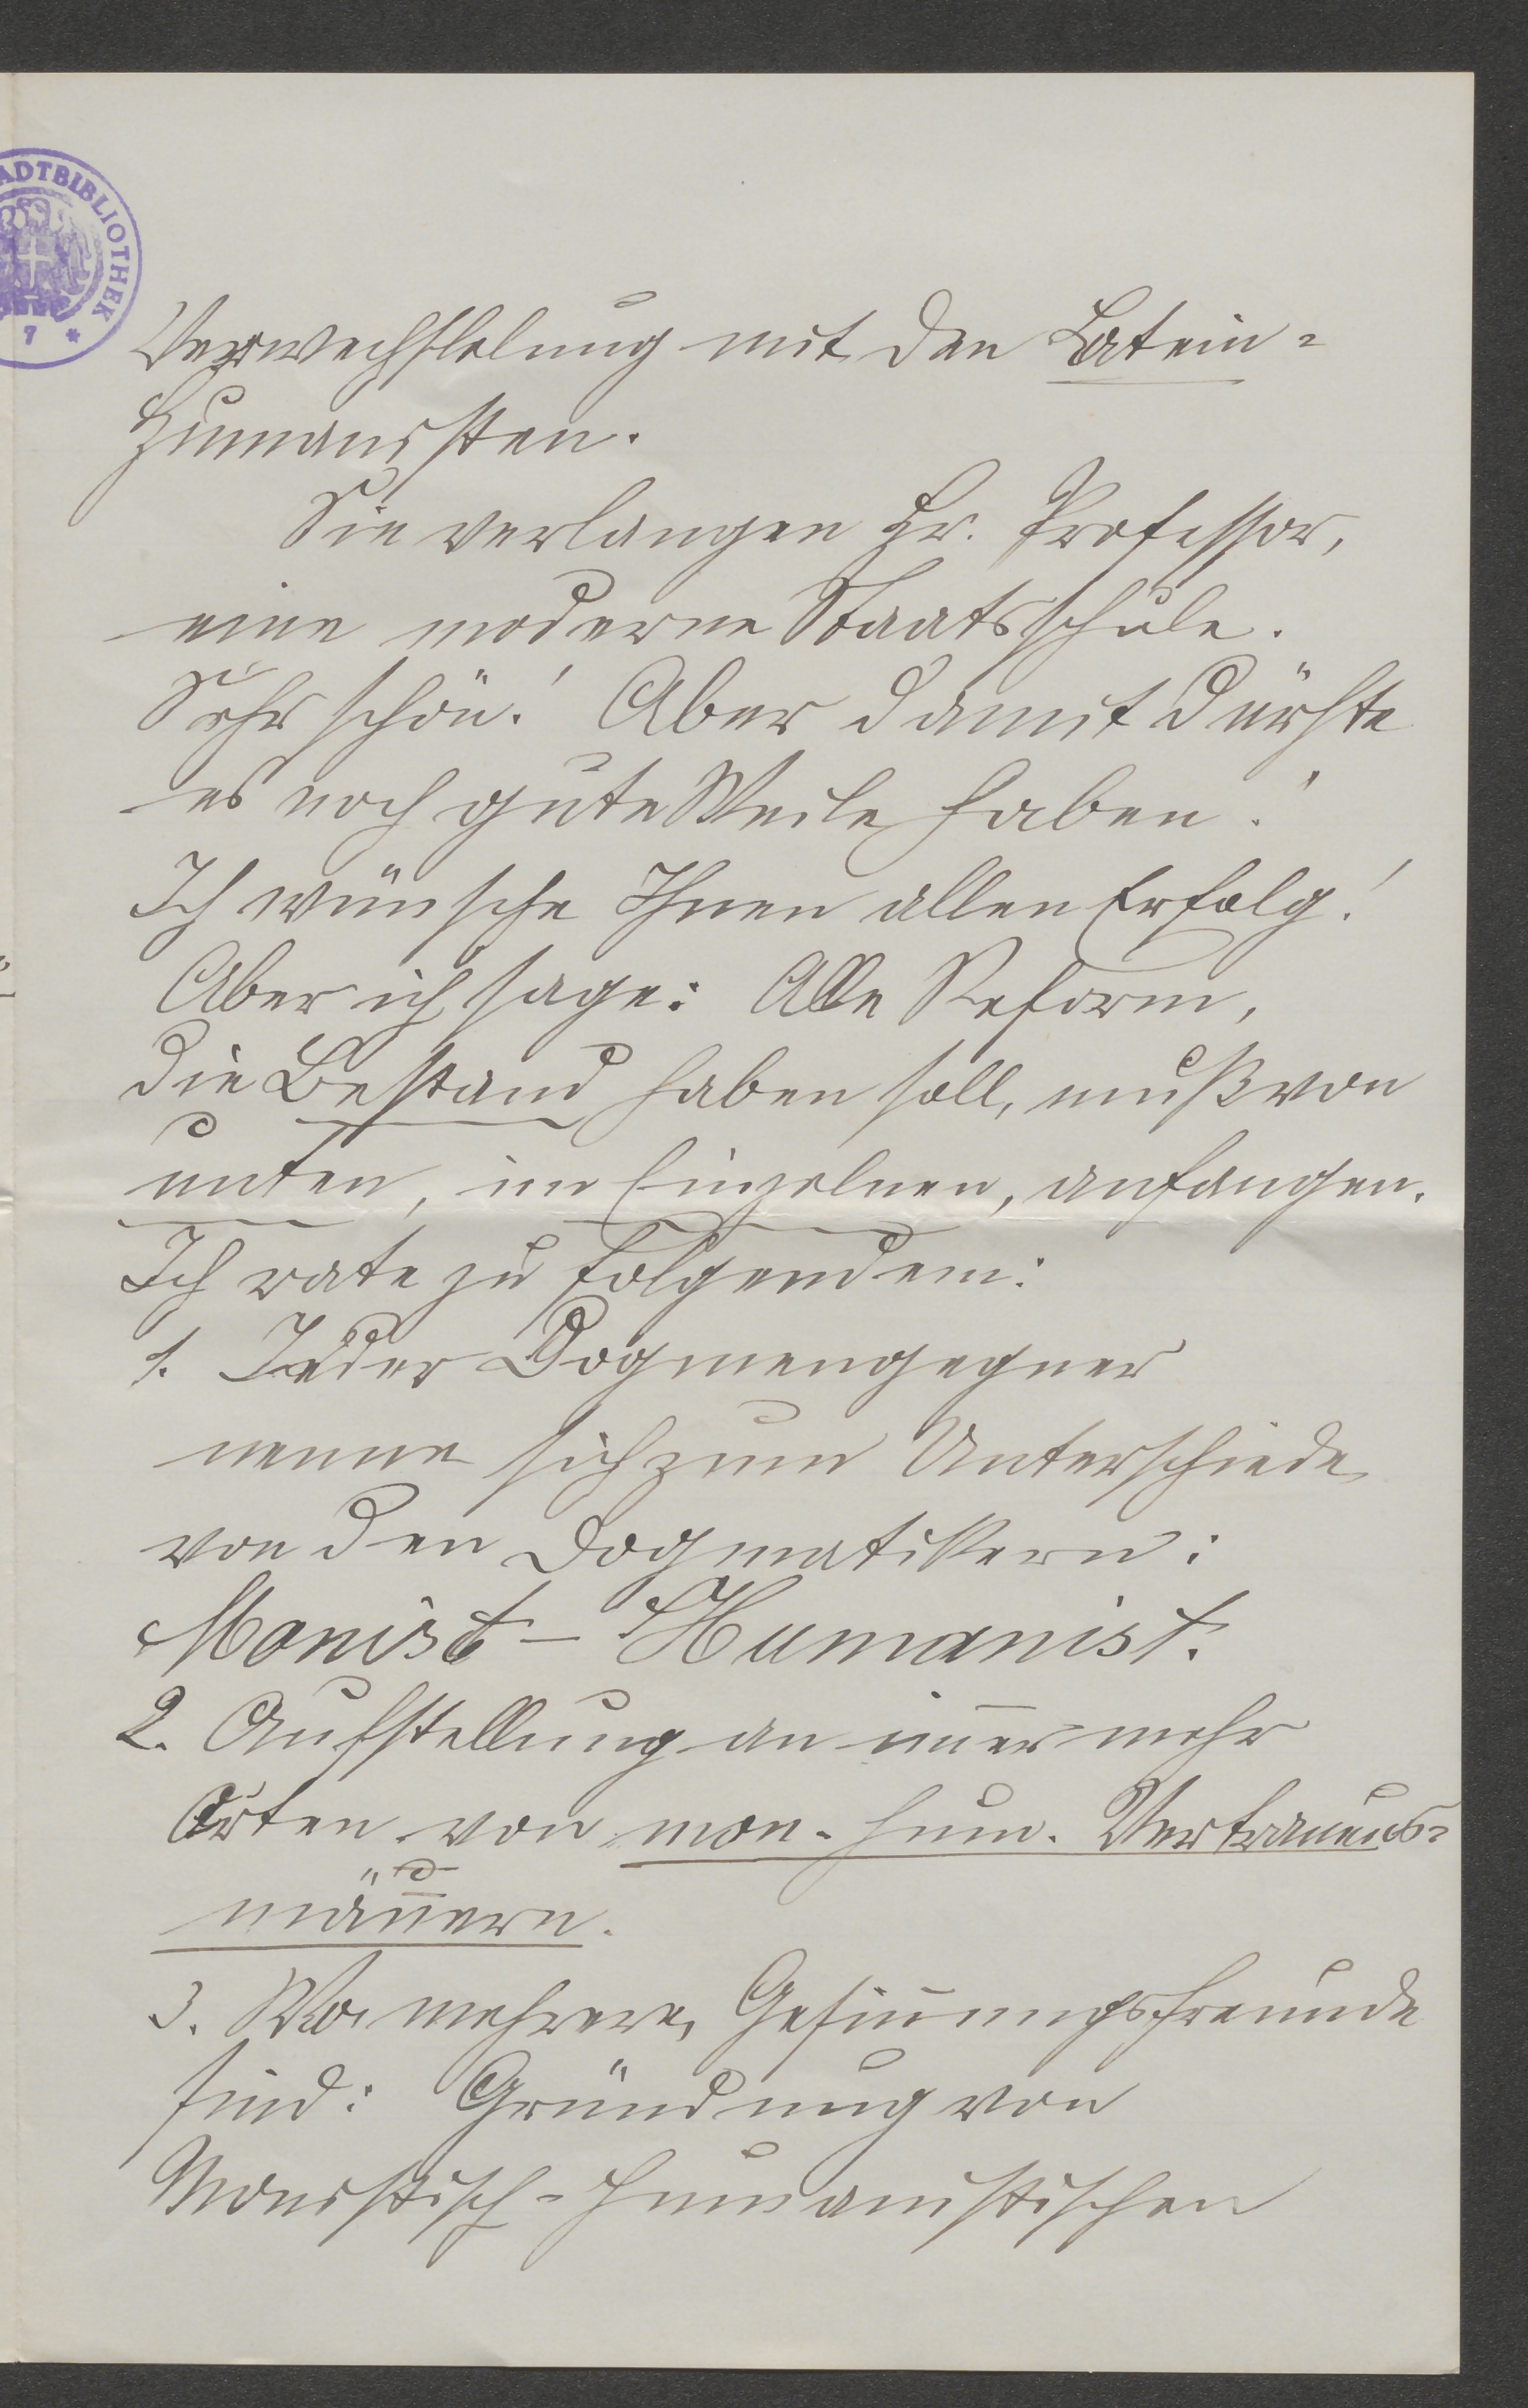 ADTBIBLIOTHEK
7 *
Verwechslelung mit den Latein-
Humanisten.
Sie verlangen Hr. Professor,
eine moderne Staatsschule.
Sehr schön! Aber damit dürfte
es noch gute Weile haben!
Ich wünsche Ihnen allen Erfolg!
Aber ich sage: Alle Reform,
die Bestand haben soll, muß von
unten, im Einzelnen, anfangen.
Ich rate zu folgendem:
1. Jeder Dogmengegner
nenne sich zum Unterschiede
von den Dogmatikern:
Monist - Humanist.
2. Aufstellung an im̅er mehr
Orten von mon.-hum. Vertrauens-
män̅ern.
3. Wo mehrere Gesin̅ungsfreunde
sind: Gründung von
Monistisch-humanistischen